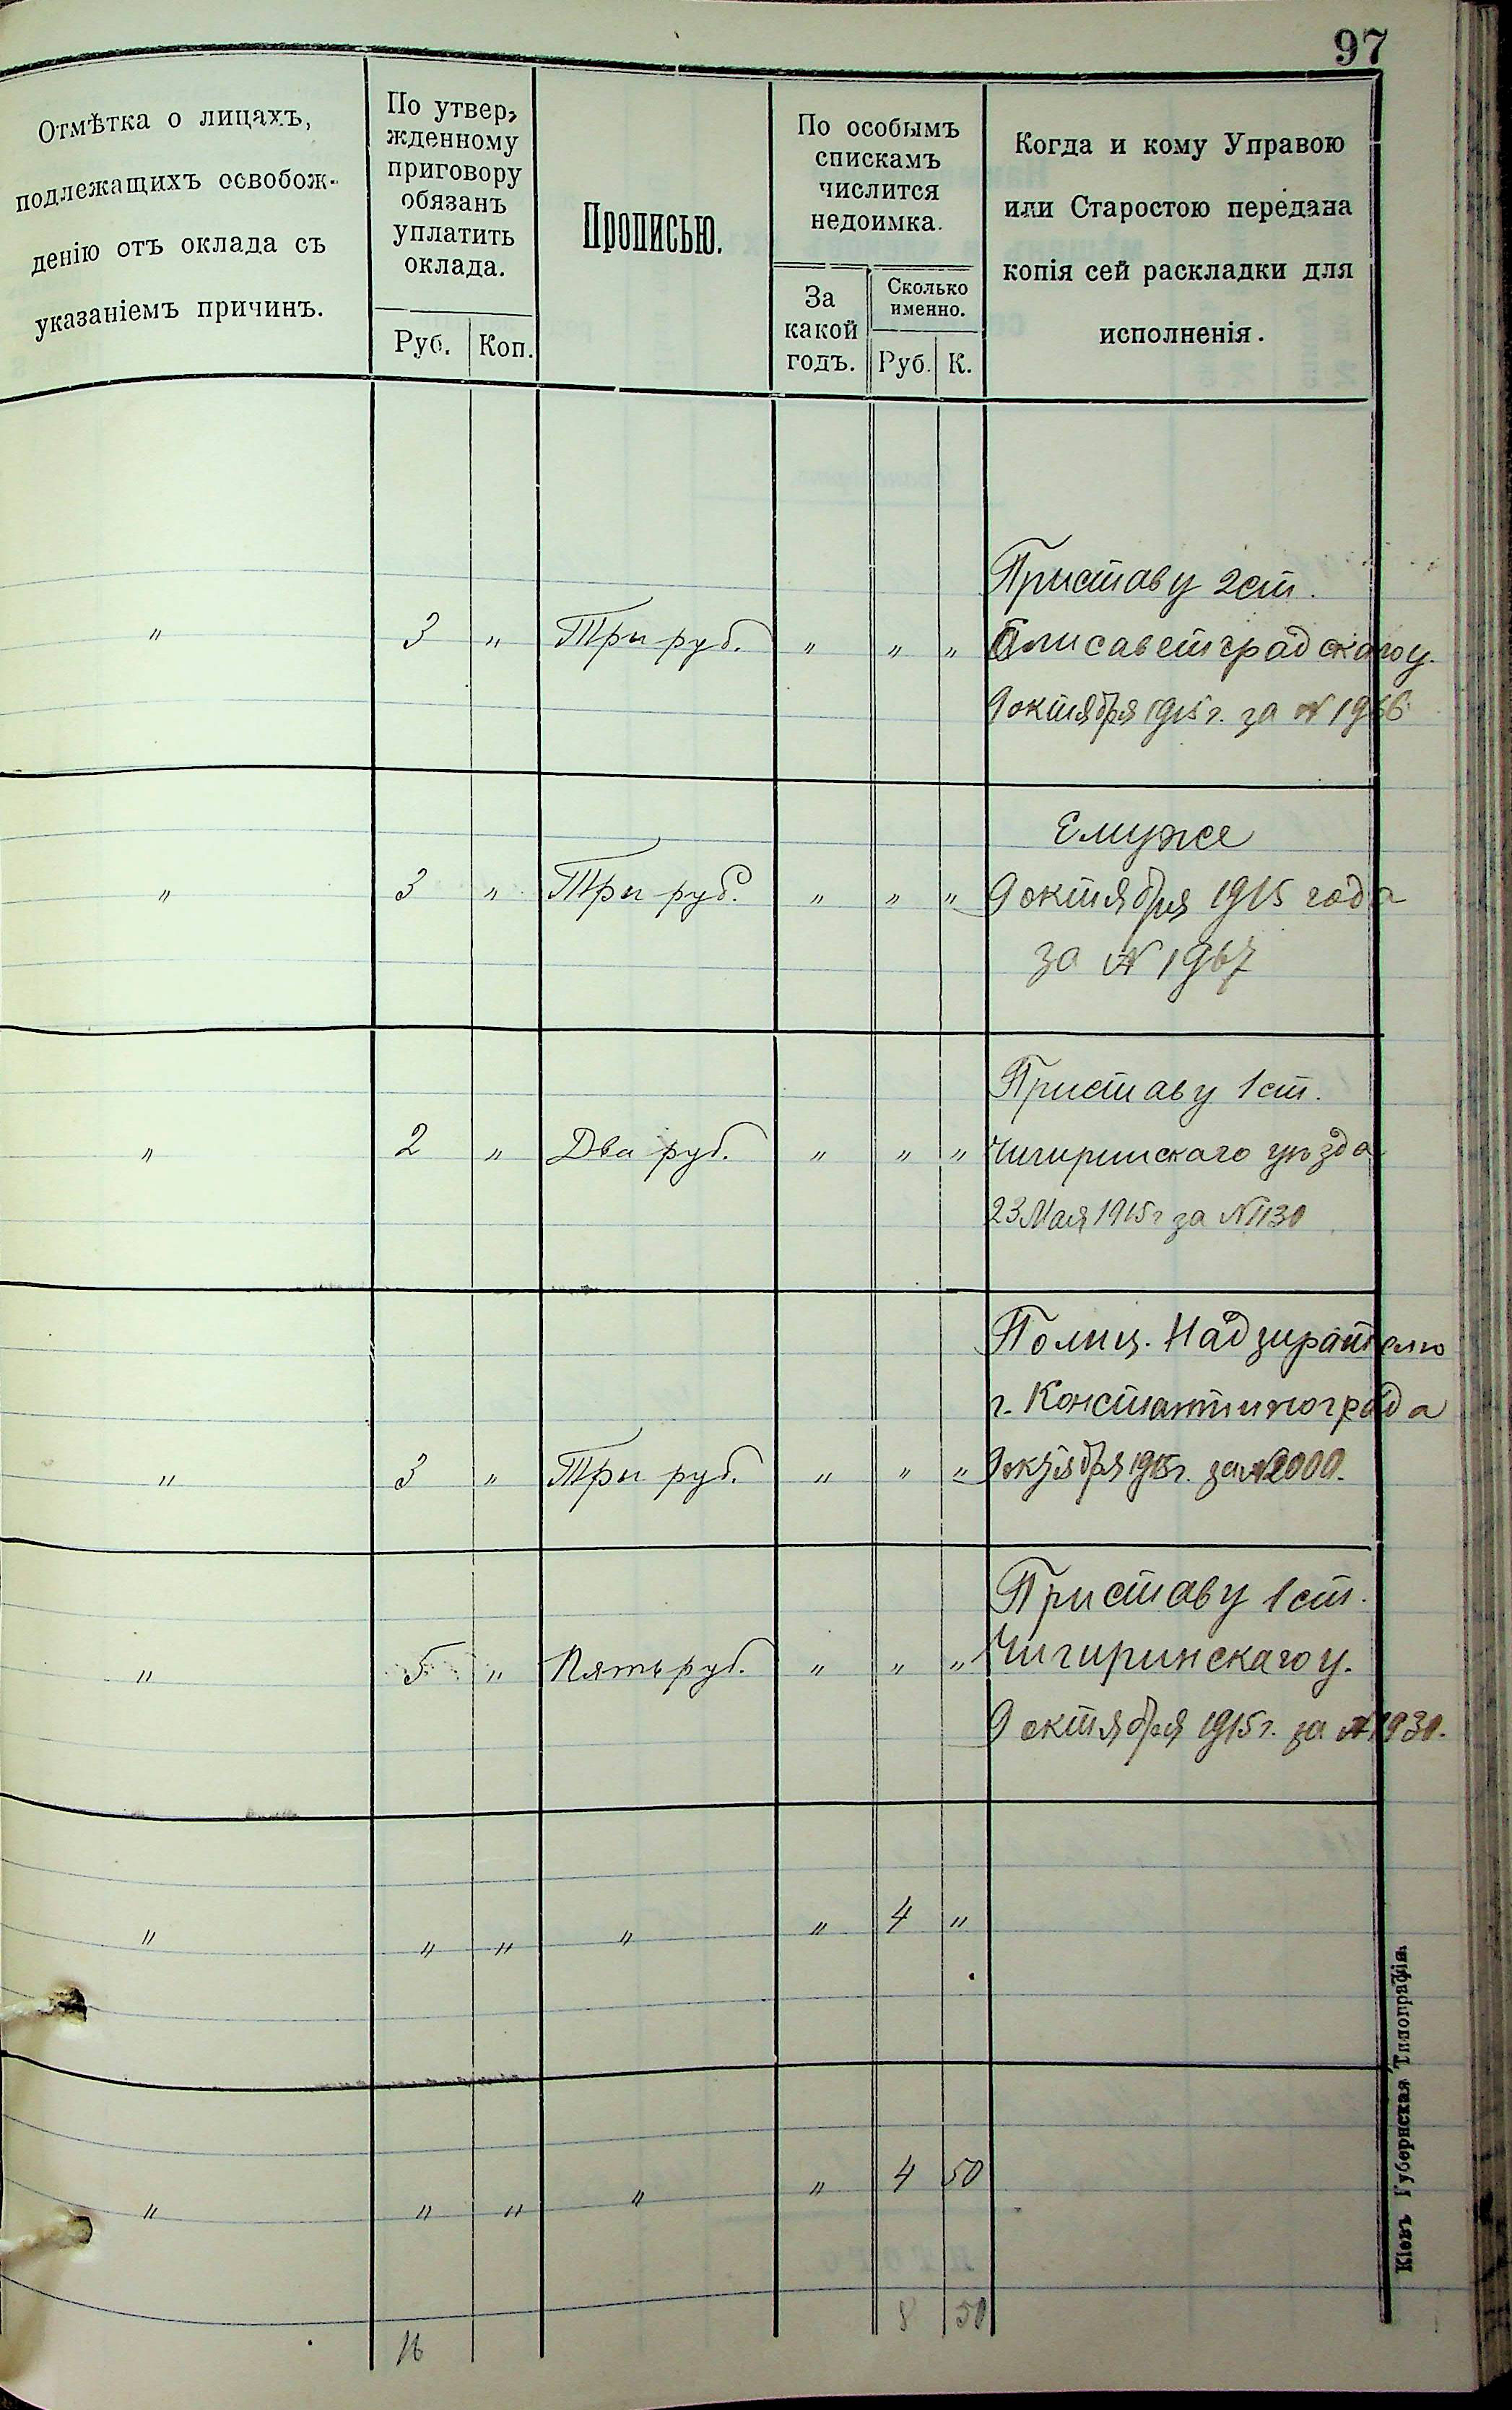 97
Отмѣтка о лицахъ,
подлежащихъ освобож-
денію отъ оклада съ
указаніемъ причинъ.
По утвер-
жденному
приговору
обязанъ
уплатить
оклада.
Руб. Коп.
Прописью.
По особымъ
спискамъ
числится
недоимка.
За
какой
годъ.
Сколько
именно.
Руб. К.
Когда и кому Управою
или Старостою передана
копія сей раскладки для
исполненія.
Приставу 2 ст.
" 3 " Три руб. " " " Елисаветградскаго у.
9 октября 1915 г. за № 1966
Емуже
" 3 " Три руб. " " " 9 октября 1915 года
за № 1967
Приставу 1 ст.
" 2 " Два руб. " " " Чигиринскаго уѣзда
23 Мая 1915 г за № 1130
Полиц. Надзирателю
г. Константинограда
" 3 " Три руб. " " " 9 октября 1915 г. за № 2000.
Приставу 1 ст.
" 5 " Пять руб. " " " Чигиринскаго у.
9 октября 1915 г. за № 1930.
" " " " " 4 "
" " " " " 4 50
16 8 50
Кіевъ Губернская Типографія.